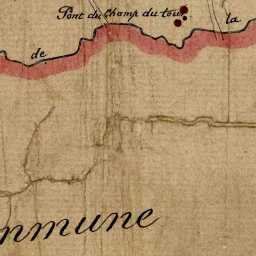 Pont du Champ du tour
de
la
nmune